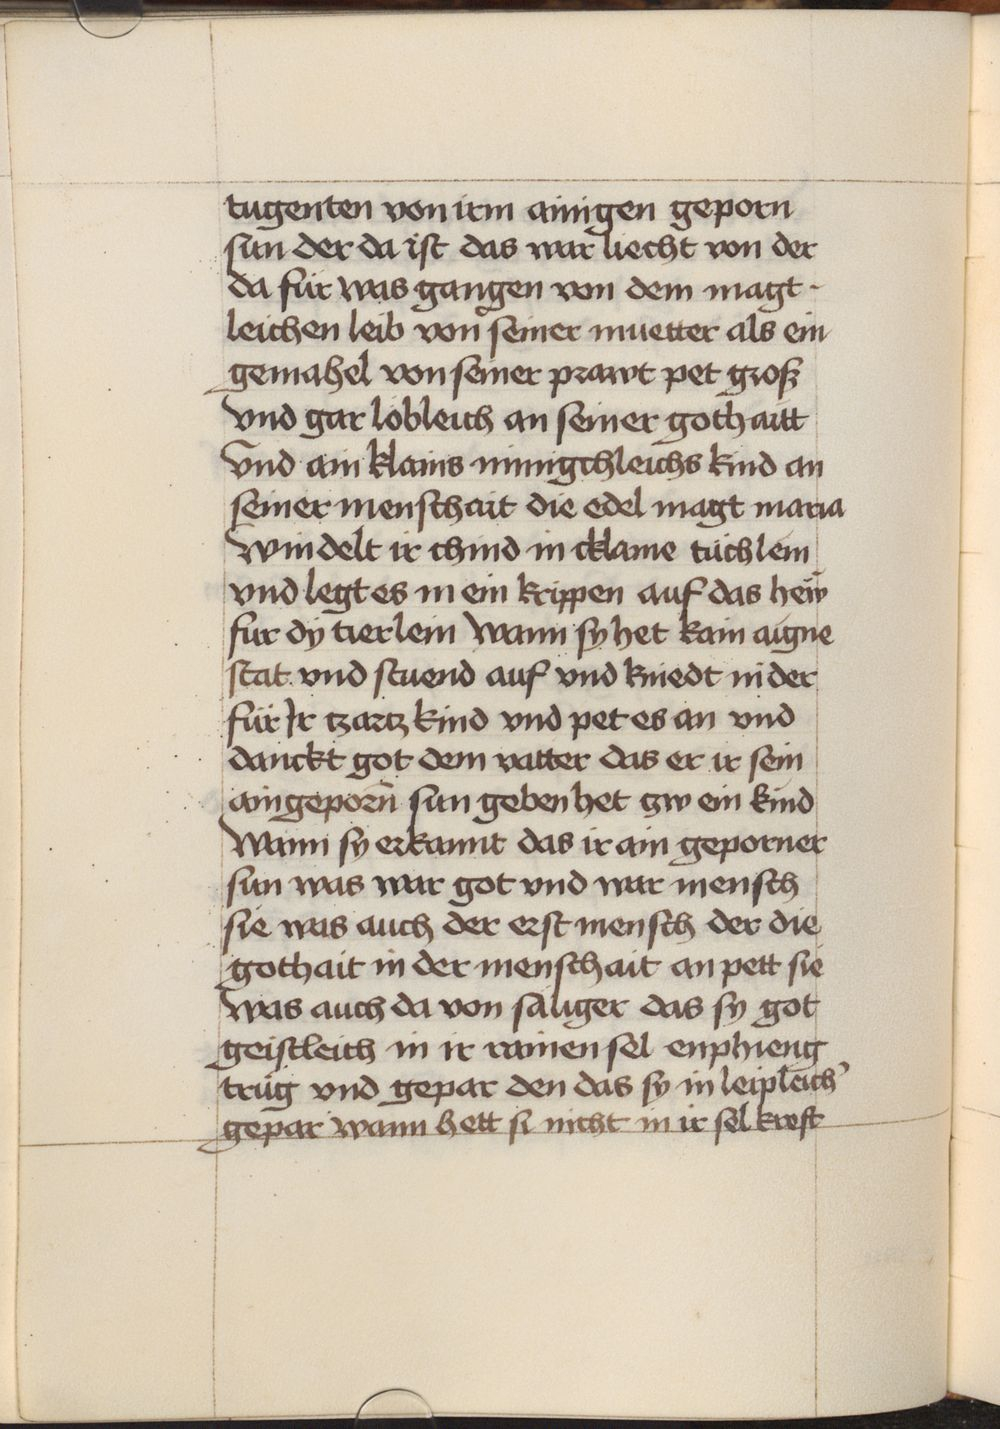 tugenten von irm ainigen geporn
sun der da ist das war liecht von der
da für was gangen von dem magt-
leichen leib von seiner muetter als ein
gemahel von seiner prawt pet groß
vnd gar lobleich an seiner gothaitt
vnd ain klains minigchleichs kind an
seiner menschait die edel magt maria
windelt ir chind in cklaine tüchlein
vnd legt es in ein krippen auf das heẅ
fur dy tierlein wann sy het kain aigne
stat vnd stuend auf vnd kniedt nider
für Ir tzartz kind vnd pet es an vnd
danckt got dem vatter das er ir sein
aingeporn̄ sun geben het zw ein kind
wann sy erkannt das ir ain geporner
sun was war got vnd war mensch
sie was auch der erst mensch der die
gothait in der menschait an pett sie
was auch da von säliger das sy got
geistleich in ir rainen sel enphieng
trüg vnd gepar den das sy in leipleich
gepar wann hett si nicht in ir sel kreft